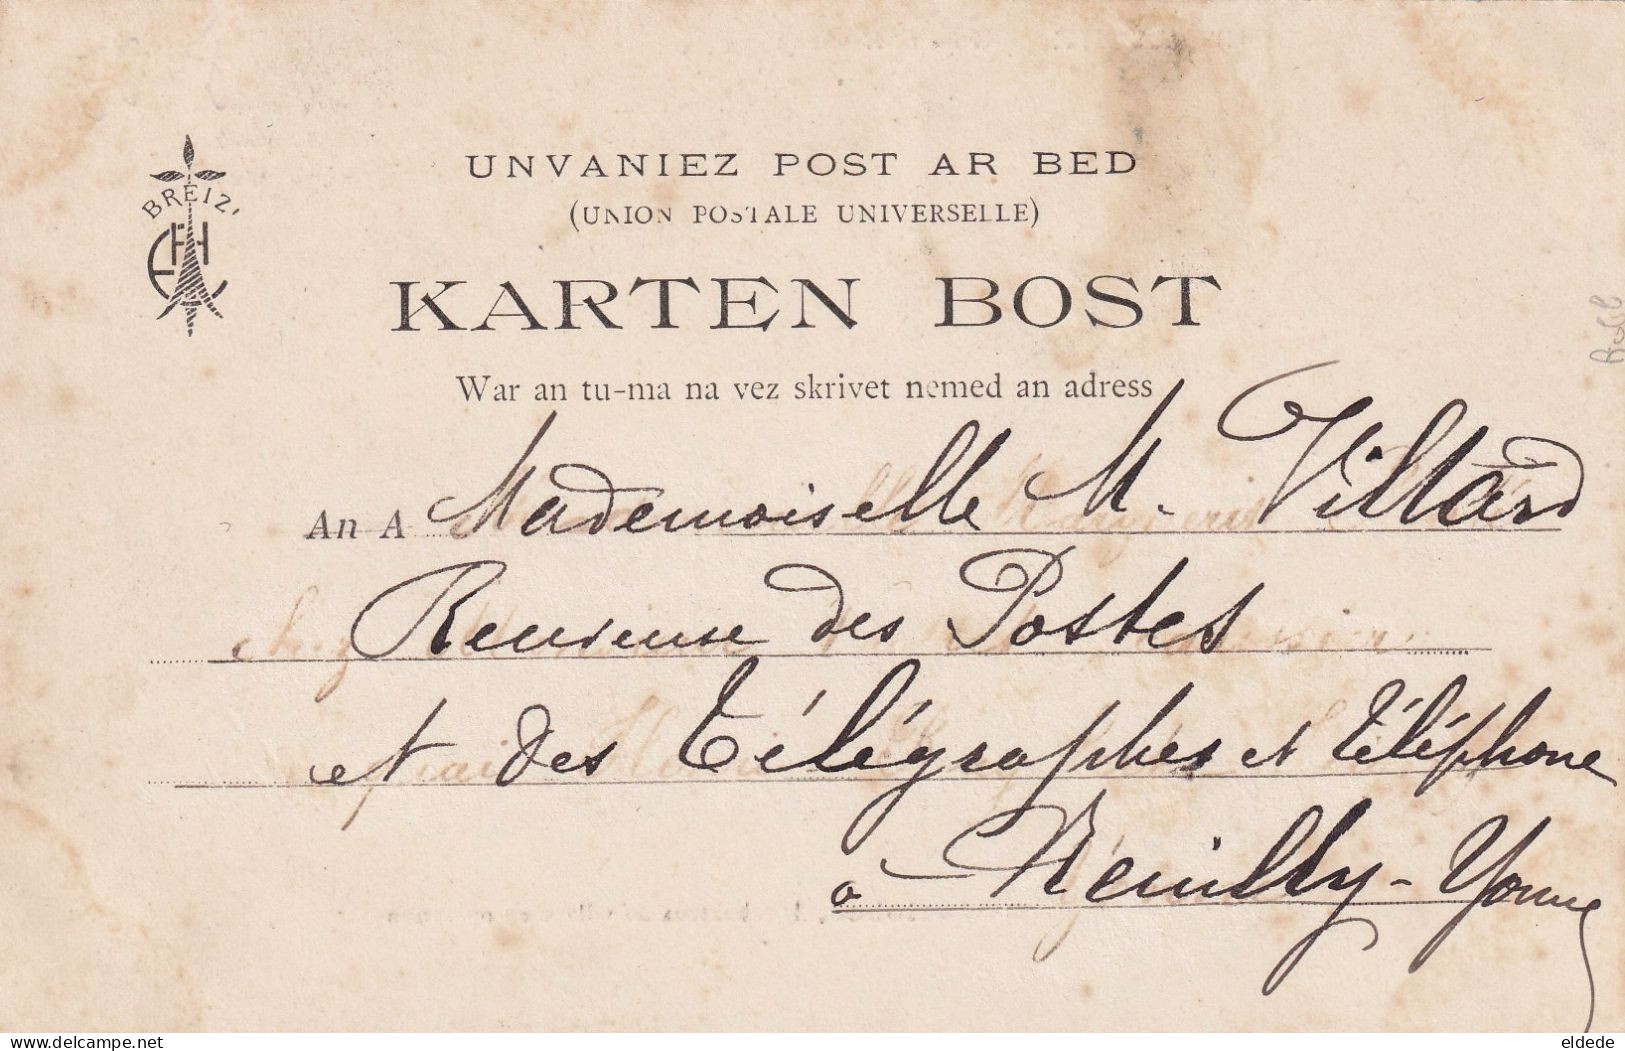 UNVANIEZ POST AR BED
(UNION POSTALE UNIVERSELLE)
BREIZ
KARTEN BOST
War an tu-ma na vez skrivet nemed an adress
An A Mademoiselle M. Villard
Receveuse des Postes
et des Télégraphes et Téléphone
à Neuilly-Yonne
delcampe.net
eldede